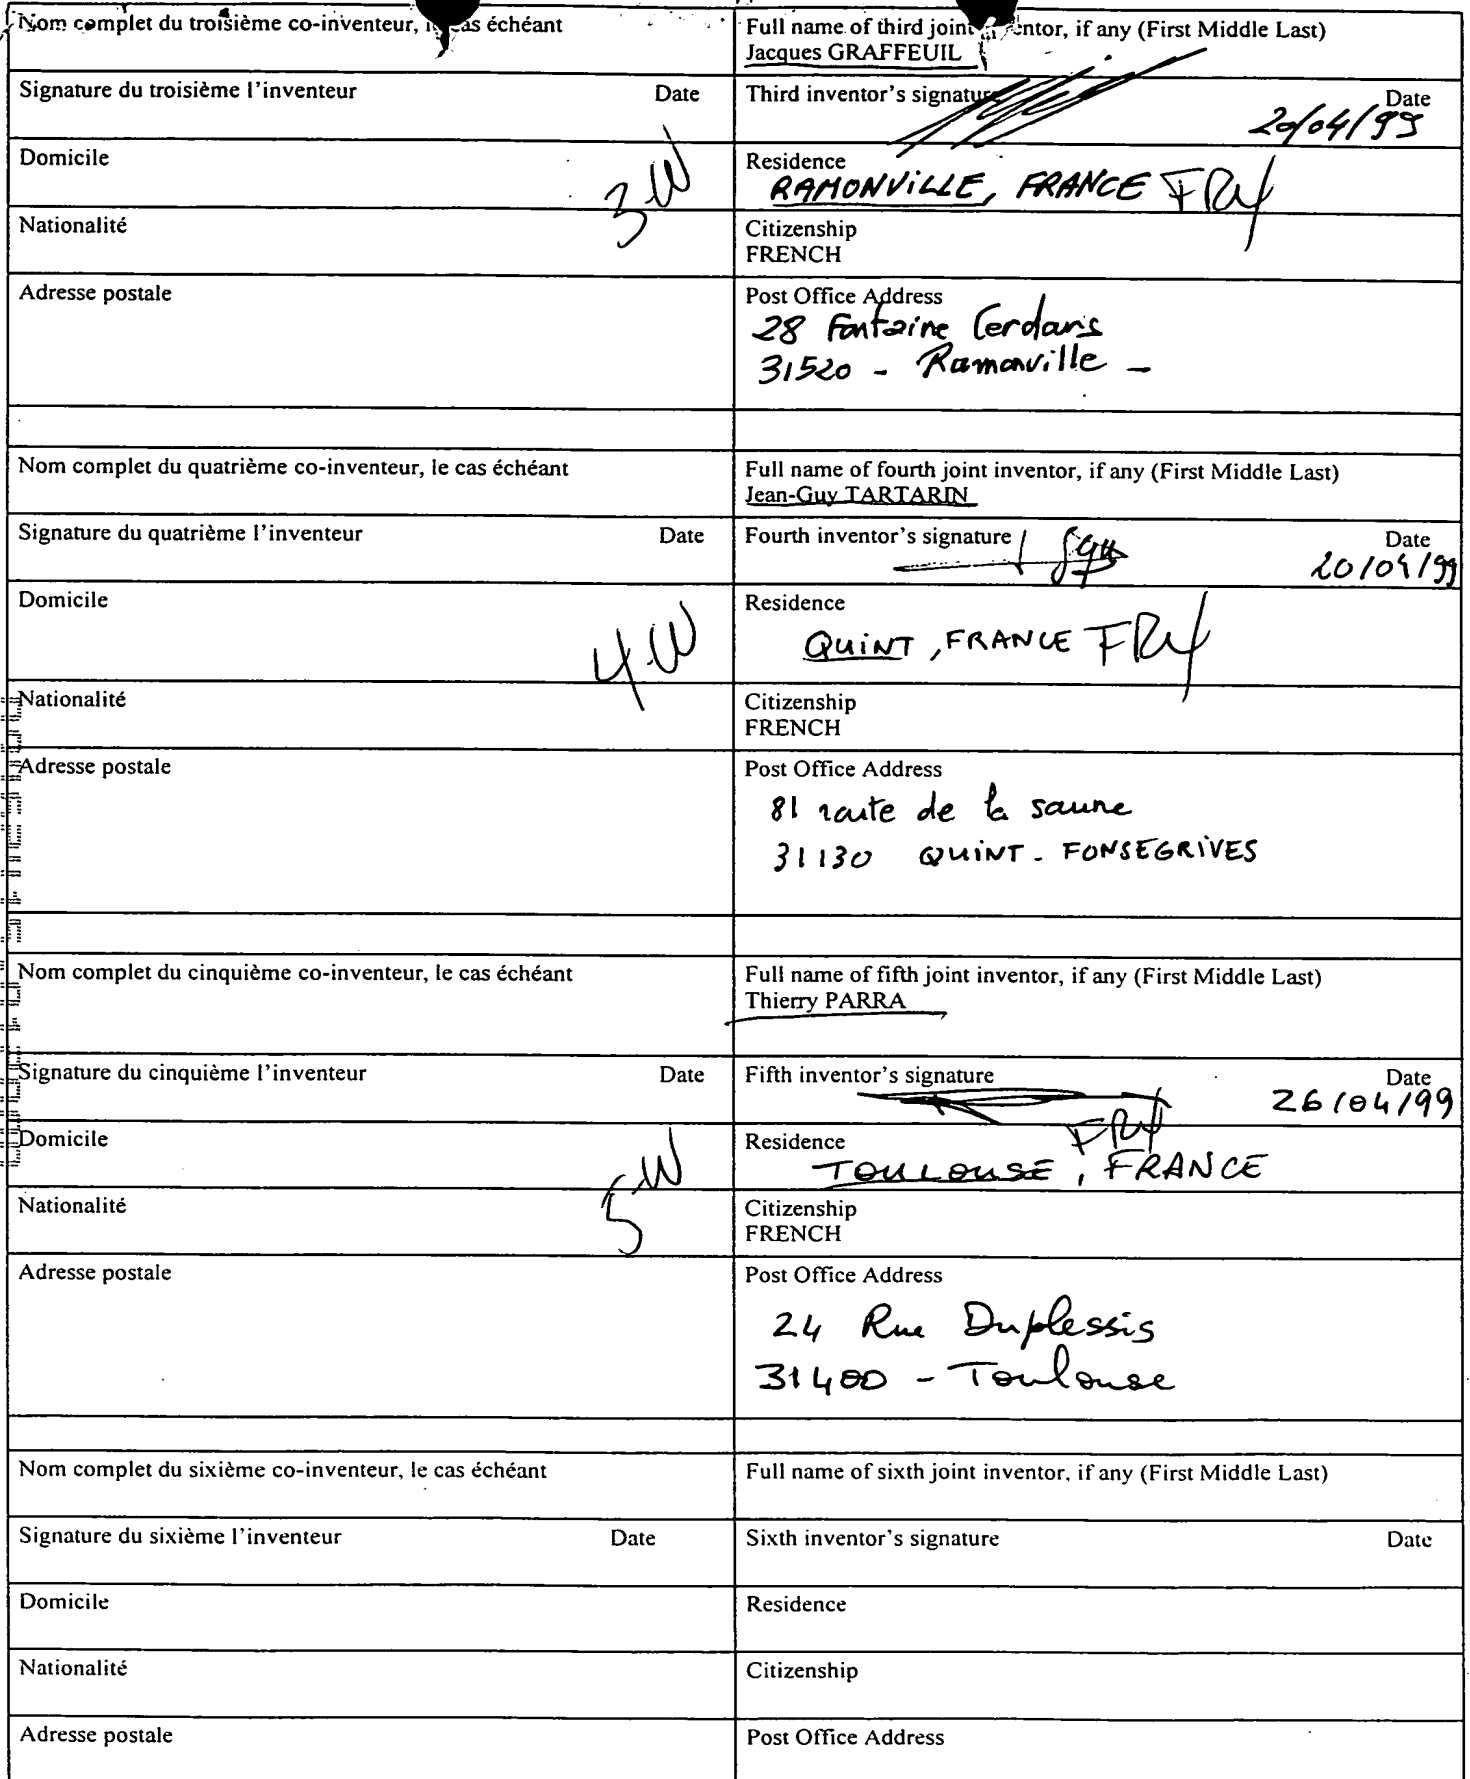 Nom complet du troisième co-inventeur, le cas échéant
Full name of third joint inventor, if any (First Middle Last)
Jacques GRAFFEUIL
Signature du troisième l'inventeur Date
Third inventor's signature Date
20/04/99
Domicile
3-W
Residence
RAMONVILLE, FRANCE FRX
Nationalité
Citizenship
FRENCH
Adresse postale
Post Office Address
28 Fontaine Cerdans
31520 - Ramonville -
Nom complet du quatrième co-inventeur, le cas échéant
Full name of fourth joint inventor, if any (First Middle Last)
Jean-Guy TARTARIN
Signature du quatrième l'inventeur Date
Fourth inventor's signature Date
20/04/99
Domicile
4-W
Residence
QUINT, FRANCE FRX
Nationalité
Citizenship
FRENCH
Adresse postale
Post Office Address
81 route de la saune
31130 QUINT - FONSEGRIVES
Nom complet du cinquième co-inventeur, le cas échéant
Full name of fifth joint inventor, if any (First Middle Last)
Thierry PARRA
Signature du cinquième l'inventeur Date
Fifth inventor's signature Date
26/04/99
Domicile
5-W
Residence FRX
TOULOUSE, FRANCE
Nationalité
Citizenship
FRENCH
Adresse postale
Post Office Address
24 Rue Duplessis
31400 - Toulouse
Nom complet du sixième co-inventeur, le cas échéant
Full name of sixth joint inventor, if any (First Middle Last)
Signature du sixième l'inventeur Date
Sixth inventor's signature Date
Domicile
Residence
Nationalité
Citizenship
Adresse postale
Post Office Address